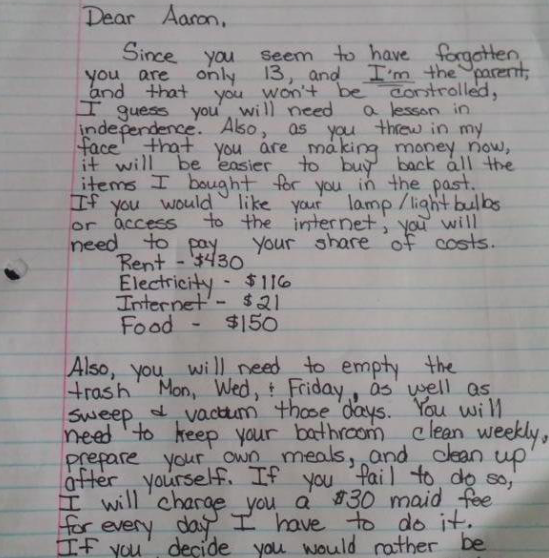 Dear Aaron,
Since you seem to have forgotten
you are only 13, and I'm the parent,
and that you won't be controlled,
I guess you will need a lesson in
independence. Also, as you threw in my
face that you are making money now,
it will be easier to buy back all the
items I bought for you in the past.
If you would like your lamp/lightbulbs
or access to the internet, you will
need to pay your share of costs.
Rent - $430
Electricity - $116
Internet - $21
Food - $150
Also, you will need to empty the
trash Mon, Wed, + Friday, as well as
sweep & vacuum those days. You will
need to keep your bathroom clean weekly,
prepare your own meals, and clean up
after yourself. If you fail to do so,
I will charge you a $30 maid fee
for every day I have to do it.
If you decide you would rather be